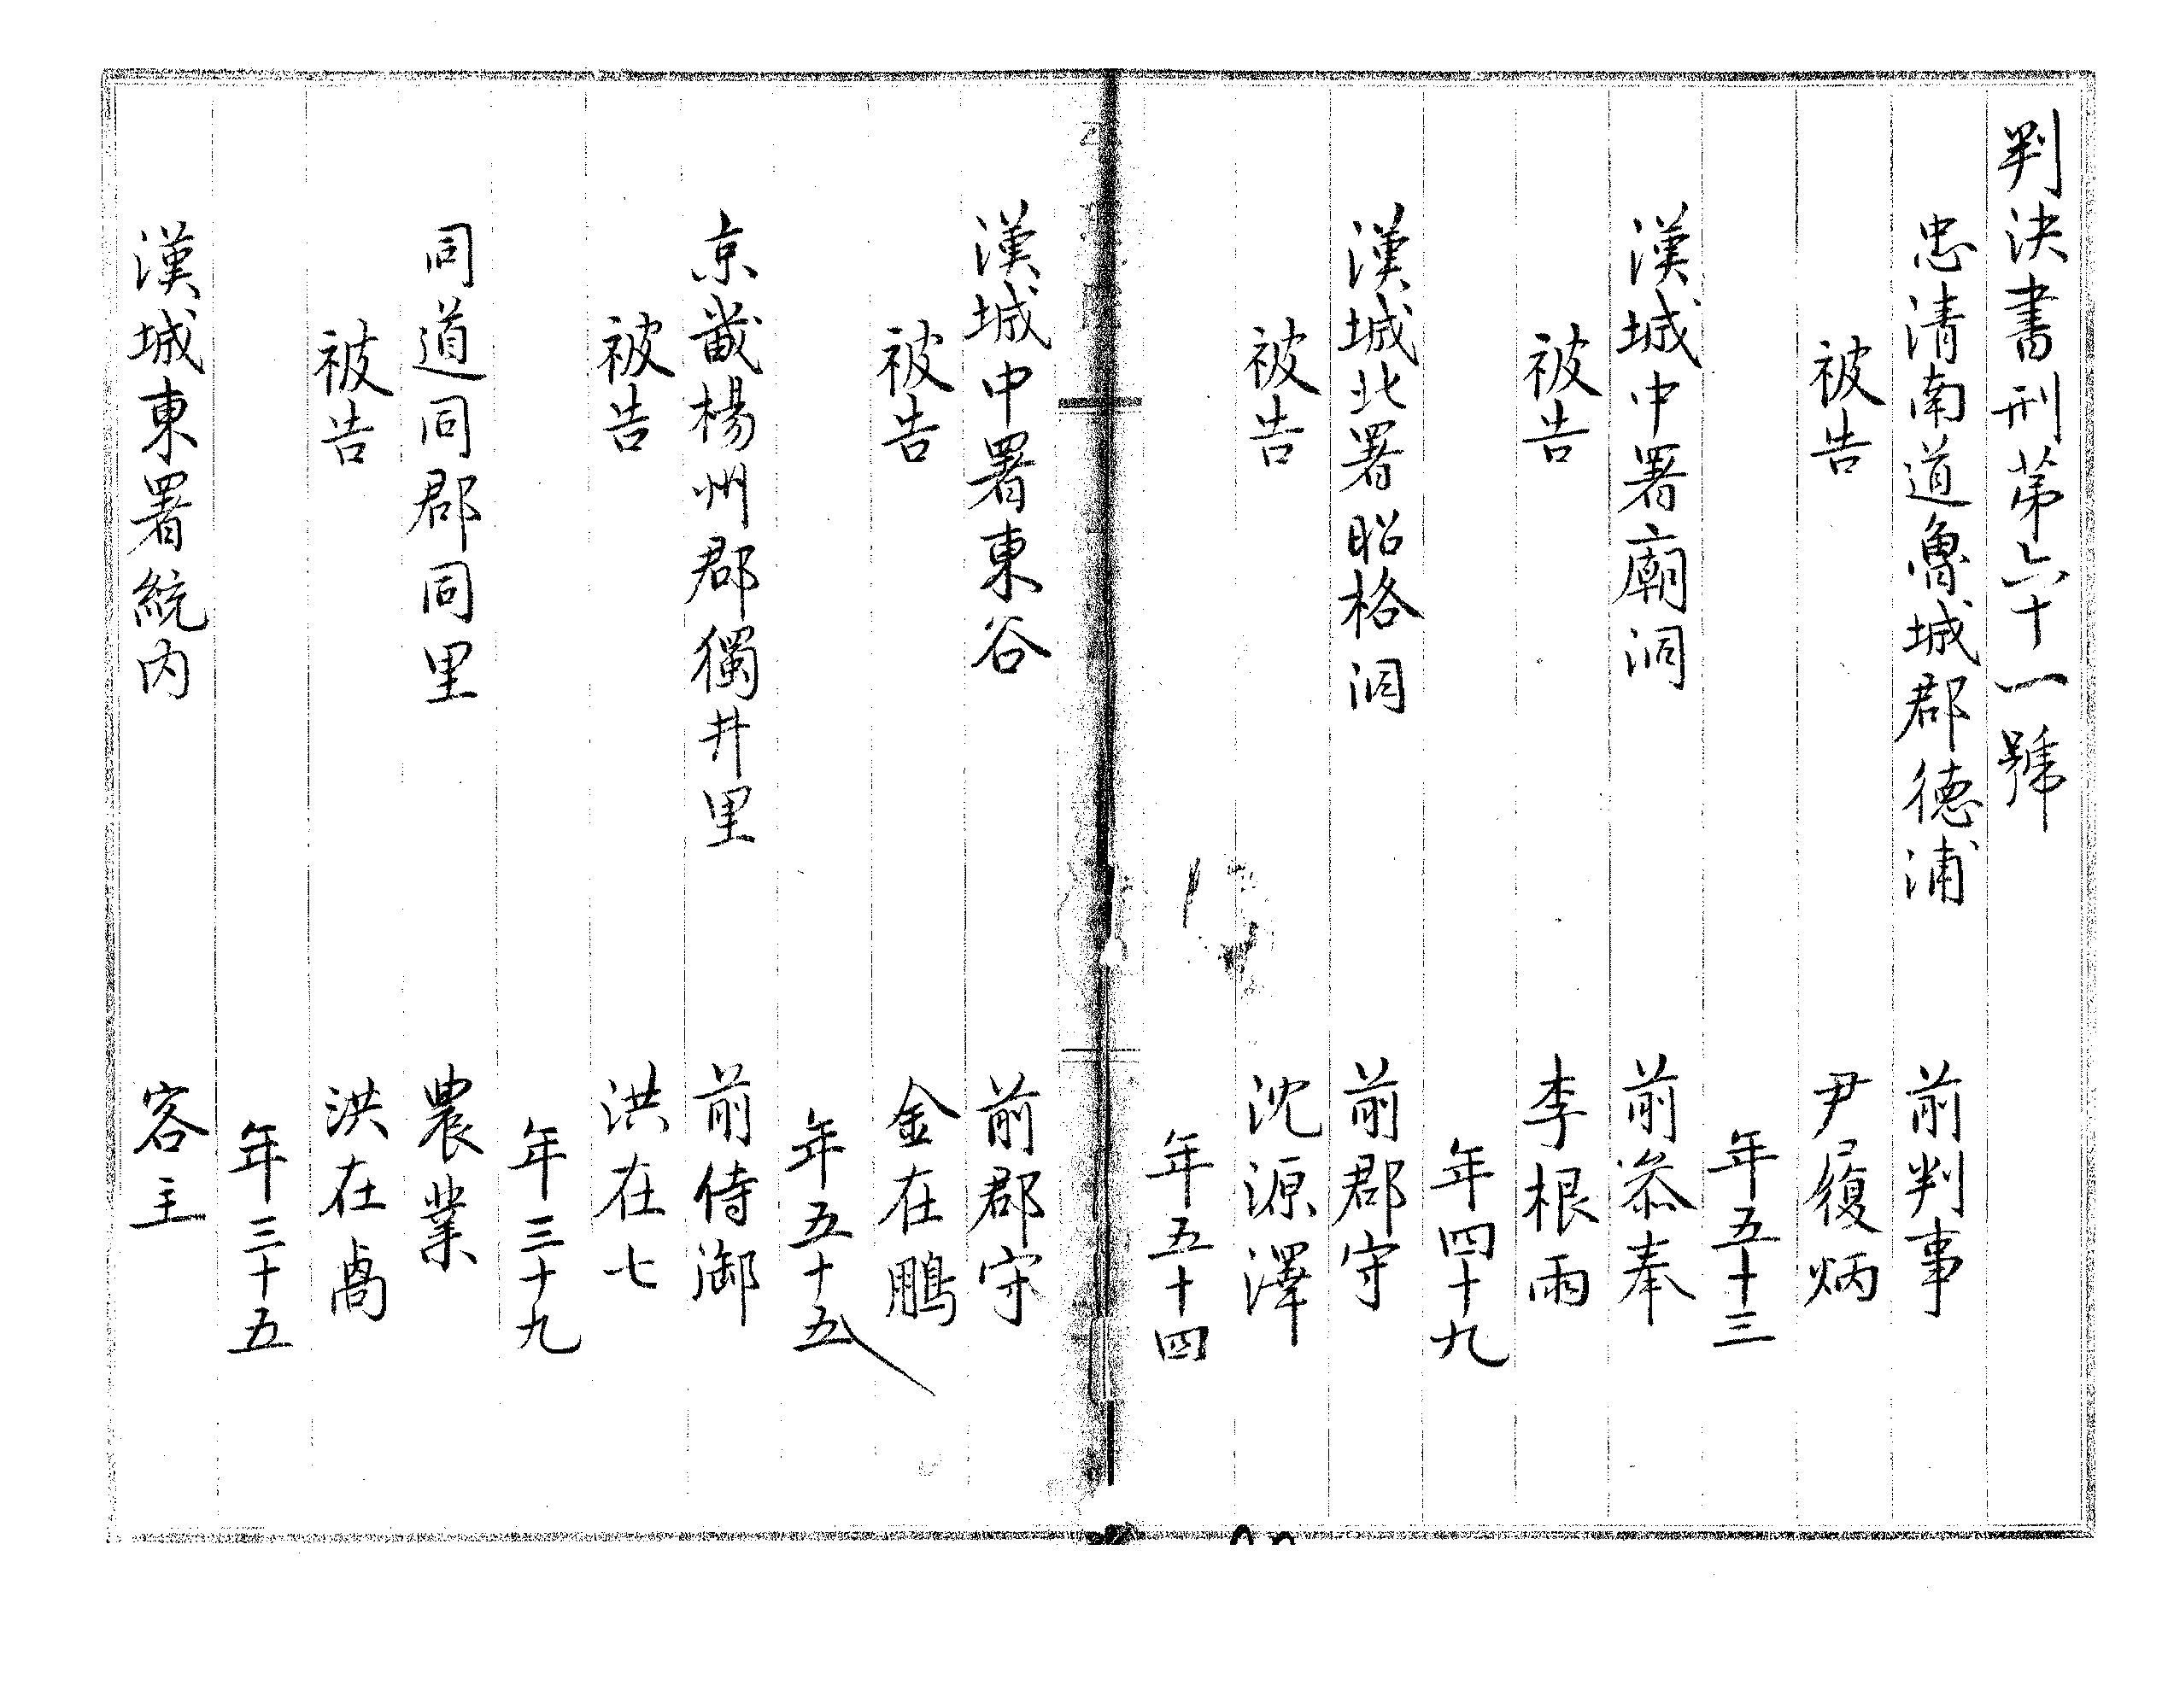 判決書刑苐六十一號
忠清南道魯城郡德浦 前判事
被告 尹履炳
年五十三
漢城中署廟洞 前叅奉
被告 李根雨
年四十九
漢城北署昭格洞 前郡守
被告 沈源澤
年五十四
漢城中署東谷 前郡守
被告 金在鵬
年五十五
京畿楊州郡獨井里 前侍御
被告 洪在七
年三十九
同道同郡同里 農業
被告 洪在卨
年三十五
漢城東署統内 客主